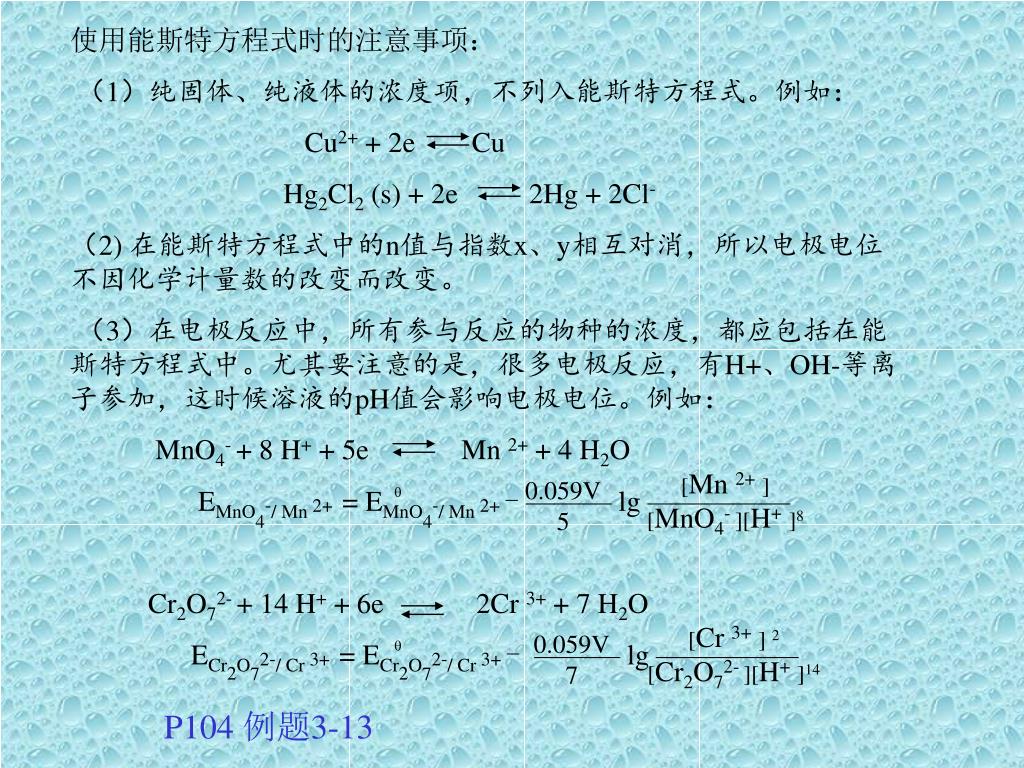 使用能斯特方程式时的注意事项：
（1）纯固体、纯液体的浓度项，不列入能斯特方程式。例如：
Cu²⁺ + 2e ⇌ Cu
Hg₂Cl₂ (s) + 2e ⇌ 2Hg + 2Cl⁻
（2) 在能斯特方程式中的n值与指数x、y相互对消，所以电极电位
不因化学计量数的改变而改变。
（3）在电极反应中，所有参与反应的物种的浓度，都应包括在能
斯特方程式中。尤其要注意的是，很多电极反应，有H+、OH-等离
子参加，这时候溶液的pH值会影响电极电位。例如：
MnO₄⁻ + 8 H⁺ + 5e ⇌ Mn ²⁺ + 4 H₂O
E MnO₄⁻/ Mn ²⁺ = E^θ MnO₄⁻/ Mn ²⁺ − 0.059V/5 lg [Mn ²⁺ ]/[MnO₄⁻ ][H⁺ ]⁸
Cr₂O₇²⁻ + 14 H⁺ + 6e ⇌ 2Cr ³⁺ + 7 H₂O
E Cr₂O₇²⁻/ Cr ³⁺ = E^θ Cr₂O₇²⁻/ Cr ³⁺ − 0.059V/7 lg [Cr ³⁺ ] ²/[Cr₂O₇²⁻ ][H⁺ ]¹⁴
P104 例题3-13